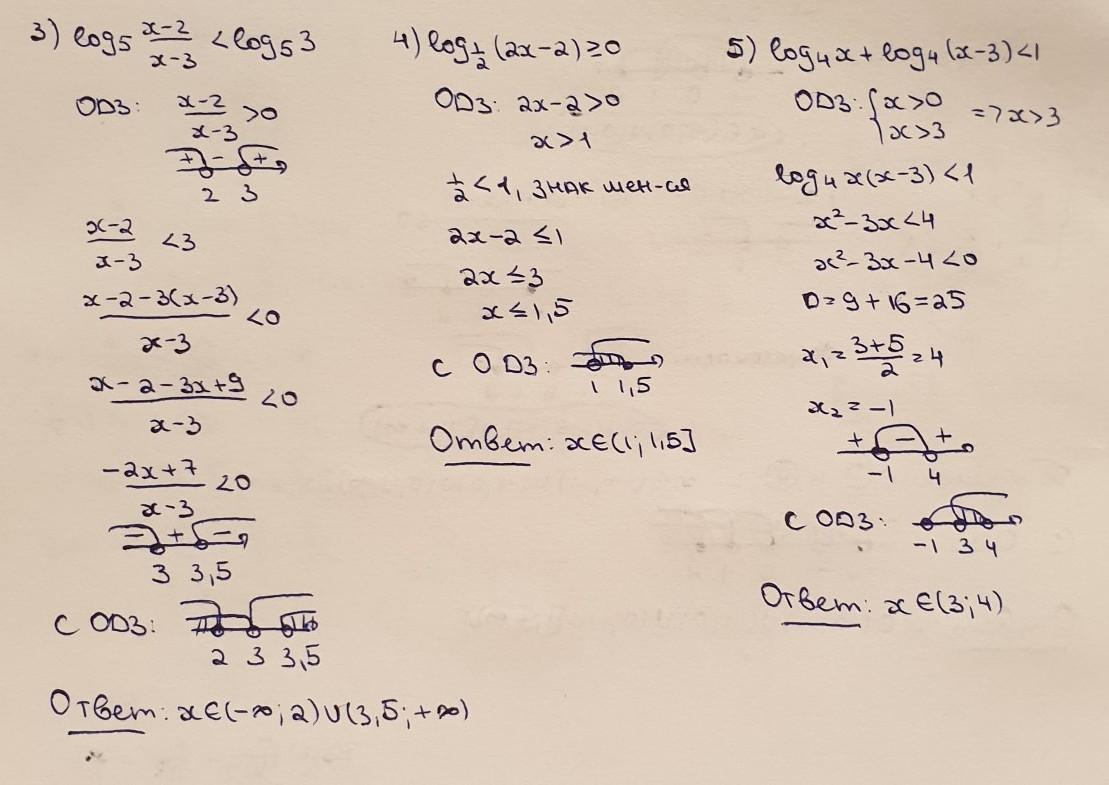 3) log₅ (x-2)/(x-3) < log₅3
ОДЗ: (x-2)/(x-3) >0
+ - +
2 3
(x-2)/(x-3) <3
(x-2-3(x-3))/(x-3) <0
(x-2-3x+9)/(x-3) <0
(-2x+7)/(x-3) <0
- + -
3 3,5
С ОДЗ:
2 3 3,5
Ответ: x∈(-∞;2)∪(3,5;+∞)
4) log_{1/2}(2x-2)≥0
ОДЗ: 2x-2>0
x>1
1/2<1, знак мен-ся
2x-2≤1
2x≤3
x≤1,5
С ОДЗ:
1 1,5
Ответ: x∈(1;1,5]
5) log₄x+log₄(x-3)<1
ОДЗ: {x>0
x>3 => x>3
log₄x(x-3)<1
x²-3x<4
x²-3x-4<0
D=9+16=25
x₁=(3+5)/2=4
x₂=-1
+ - +
-1 4
С ОДЗ:
-1 3 4
Ответ: x∈(3;4)